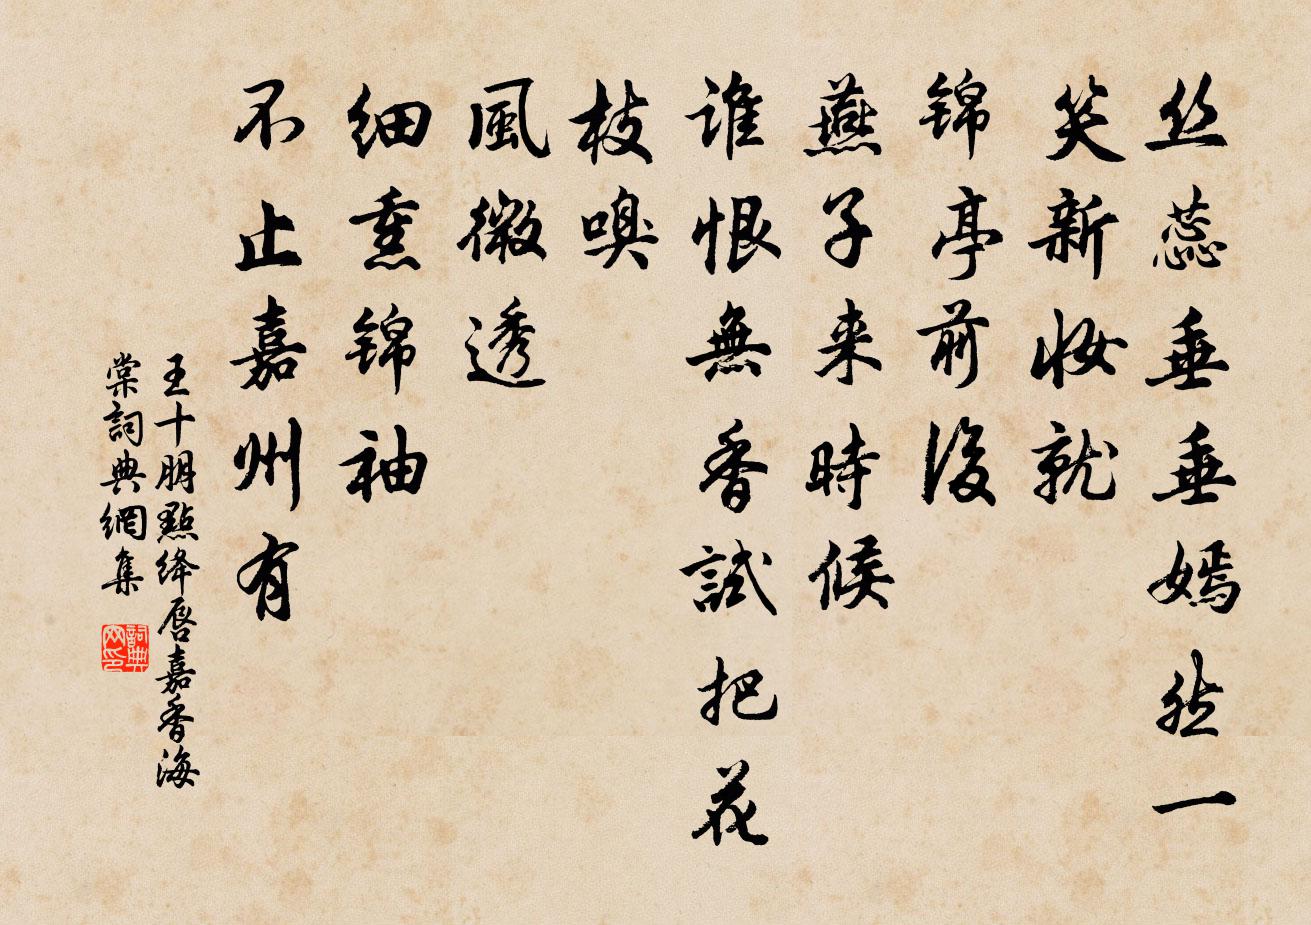 丝蕊垂垂嫣然一
笑新妆就
锦亭前後
燕子来時候
谁恨無香試把花
枝嗅
風微透
细熏锦袖
不止嘉州有
王十朋點绛唇嘉香海
棠詞典網集
詞典
网印